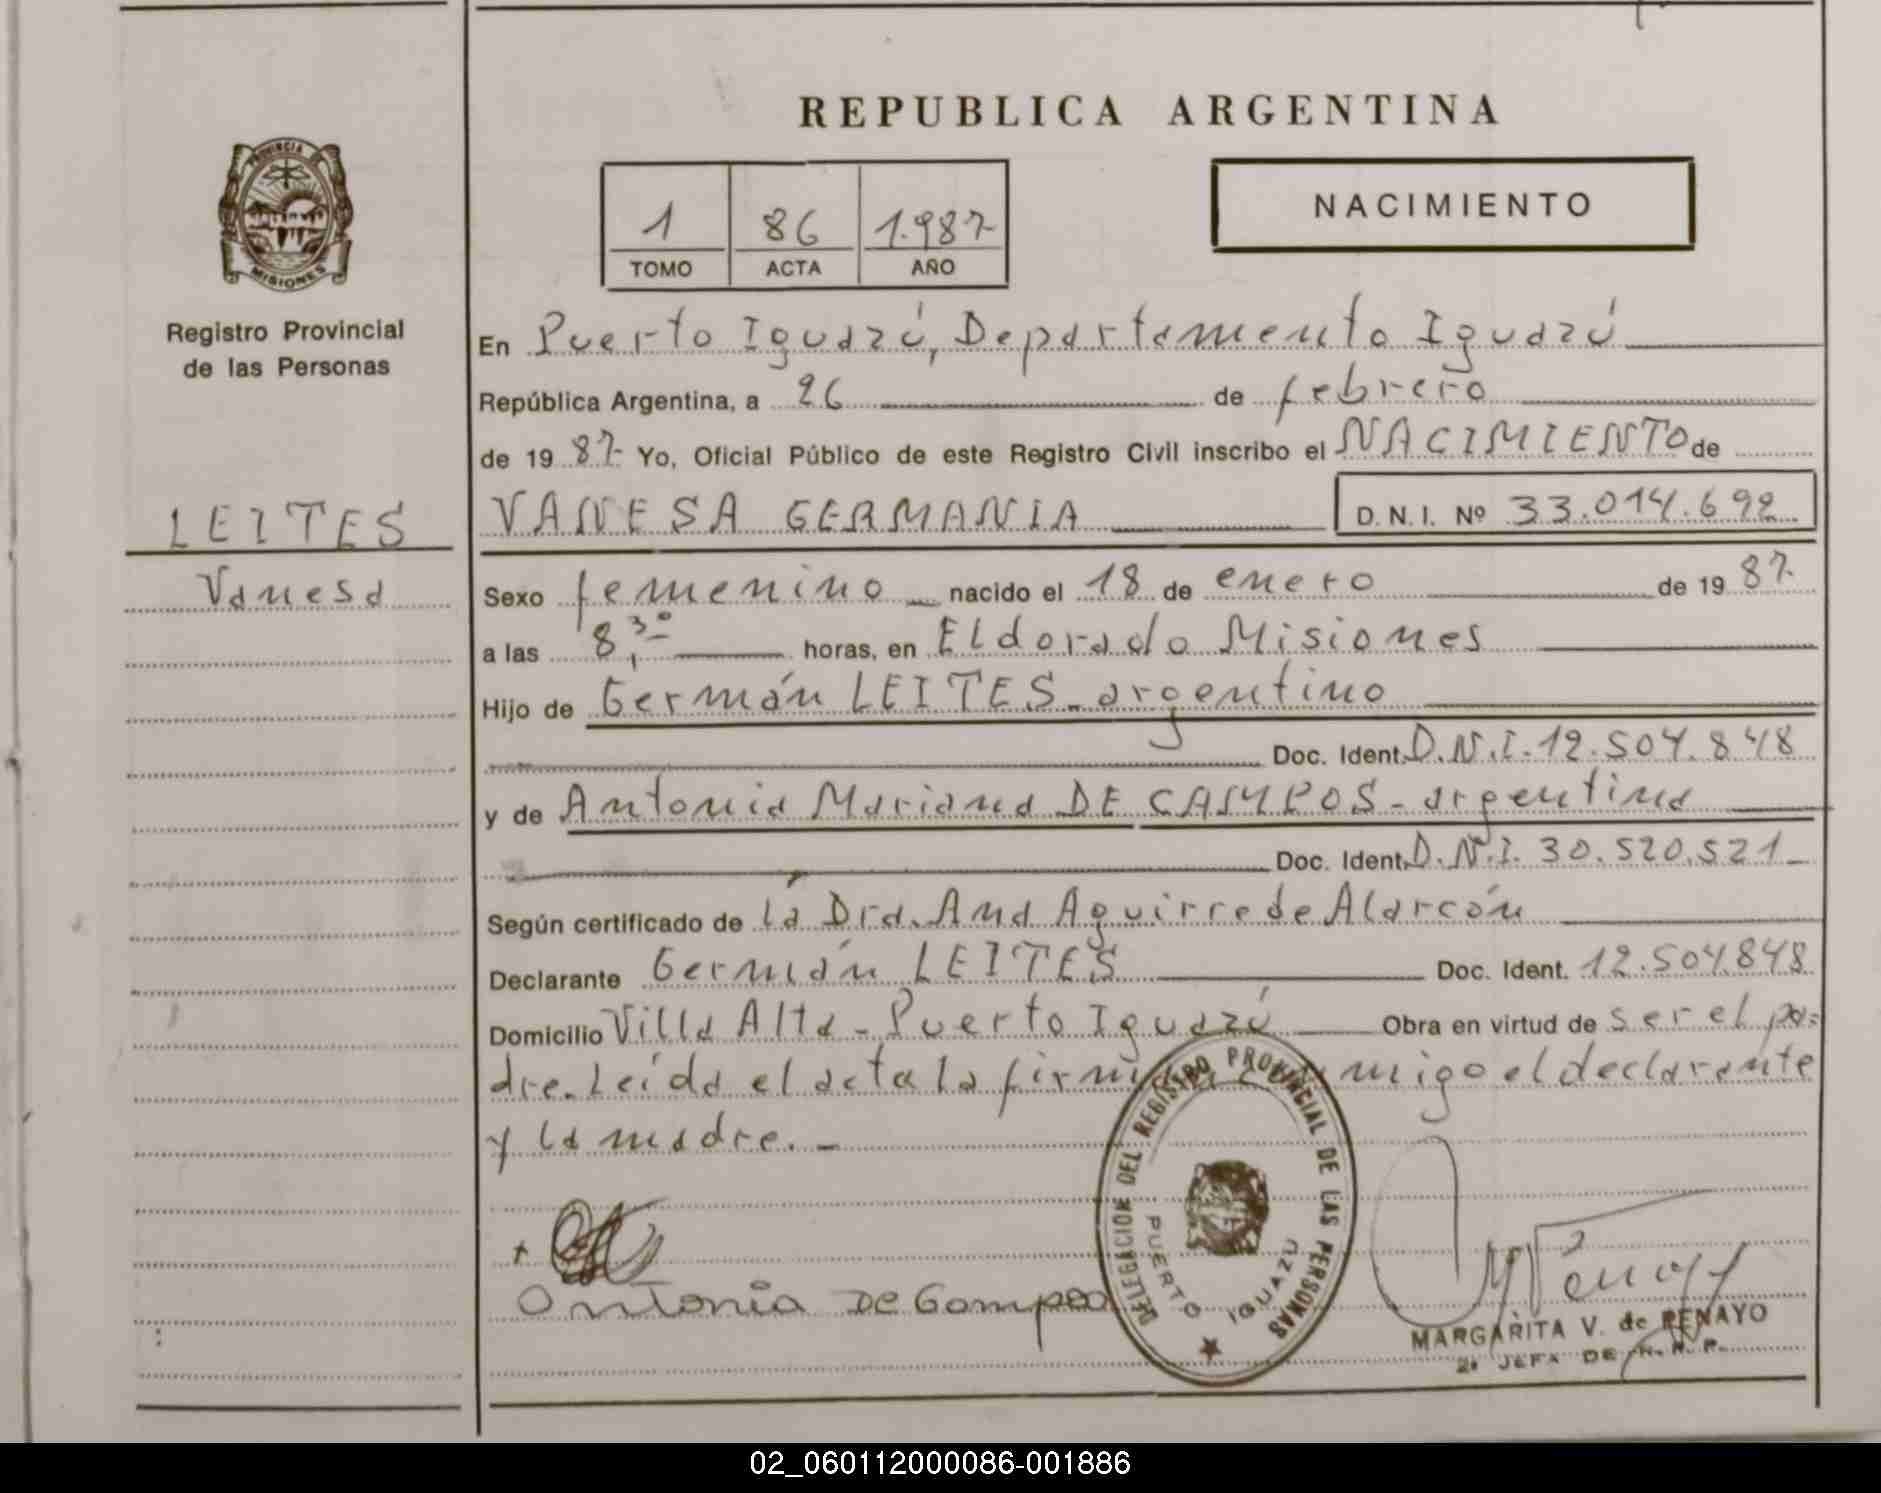 REPUBLICA ARGENTINA
PROVINCIA DE
MISIONES
Registro Provincial
de las Personas
1 86 1.987
TOMO ACTA AÑO
NACIMIENTO
En Puerto Iguazú, Departamento Iguazú
República Argentina, a 26 de febrero
de 19 87 Yo, Oficial Público de este Registro Civil inscribo el NACIMIENTO de
LEITES
Vanesa
VANESA GERMANIA D. N. I. Nº 33.014.692
Sexo femenino nacido el 18 de enero de 19 87
a las 8,30 horas, en Eldorado Misiones
Hijo de Germán LEITES - argentino
Doc. Ident. D.N.I. 12.504.848
y de Antonia Mariana DE CAMPOS - argentina
Doc. Ident. D.N.I. 30.520.521
Según certificado de la Dra. Ana Aguirre de Alarcón
Declarante Germán LEITES Doc. Ident. 12.504848
Domicilio Villa Alta - Puerto Iguazú Obra en virtud de ser el pa=
dre. Leída el acta la firman migo el declarante
y la madre. -
Antonia De Campo
DELEGACION DEL REGISTRO PROVINCIAL DE LAS PERSONAS
PUERTO IGUAZU
MARGARITA V. de PENAYO
2ª JEFA DE R. P.
02_060112000086-001886